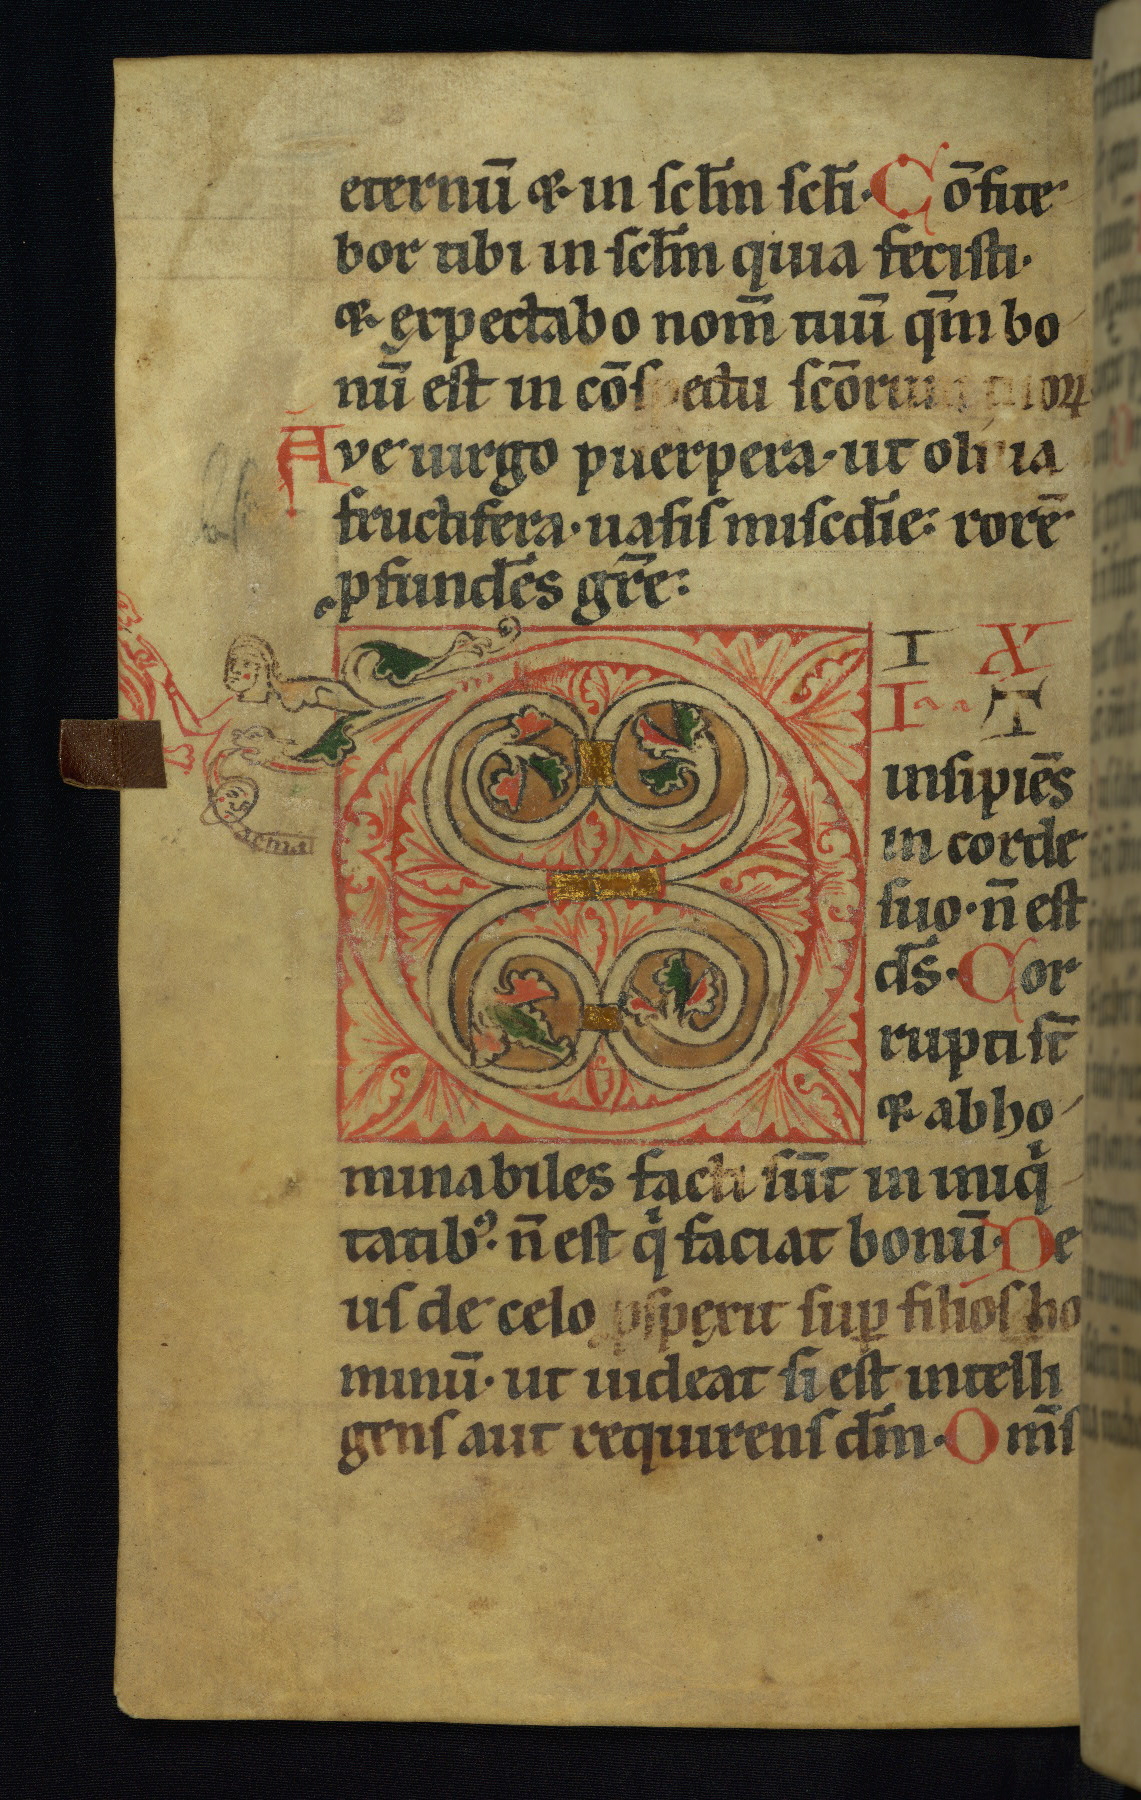 eternū ⁊ in sclm̄ scl̄i. Cōfite
bor tibi in sclm̄ quia fecisti.
⁊ expectabo nom̄ tuū qm̄ bo
nū est in cōspectu scōrum tuoꝝ
Ave uirgo puerpera. ut oliua
fructifera. uasis miscdīe: rorē
pfundēs grē:
D I X
I T
insipiēs
in corde
suo. n̄ est
ds̄. Cor
rupti st̄
⁊ abho
minabiles facti sūt in iniqͥ
tatibꝰ. n̄ est qͥ faciat bonū. De
us de celo ꝓspexit suꝑ filios ho
minū. ut uideat si est intelli
gens aut requirens dm̄. Om̄s